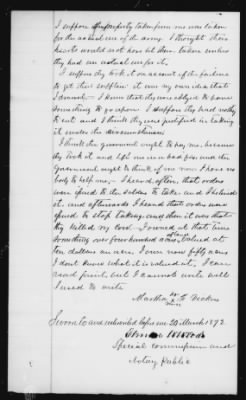 I suppose property taken from me was taken
for the actual use of the army. I thought their
hearts would not have let them taken unless
they had an actual use for it.
I suppose they took it on account of the failure
to get their supplies. it was my own idea that
I done it. I knew that they was obliged to have
something to go upon. I suppose they had nothing
to eat and I think they was justified in taking
it under the circumstances.
I think the government ought to pay me, because
they took it and left me in a bad fix and the
Government ought to think of me now I have no
body to help me. I heard, often, that orders
were issued to the soldiers to take and I believed
it. and afterwards I heard that orders was
issued to stop taking, and then it was that
they killed my cow. I owned at that time
something over four hundred acres, of land valued at
ten dollars an acre. I own now fifty acres
I don't know what it is valued at. I can
read print but I cannot write well
I used to write
Martha
Sworn to and subscribed before me 20 March 1873.
Special commissioner and
Notary Public